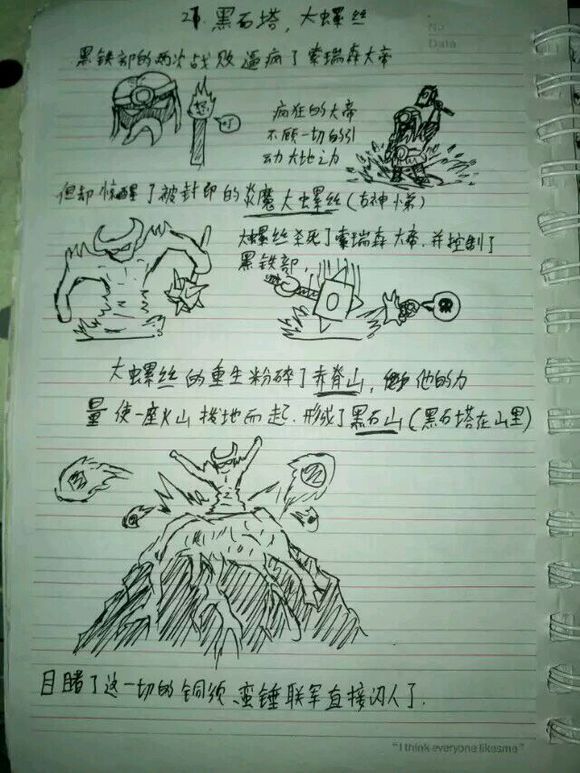 21. 黑石塔，大螺丝
No.
Date
黑铁部的两次战败逼疯了索瑞森大帝
怒
疯狂的大帝
不顾一切的引
动大地之力
但却惊醒了被封印的炎魔大螺丝(古神小弟)
大螺丝杀死了索瑞森大帝.并控制了
黑铁部,
大螺丝的重生粉碎了赤脊山,他的力
量使一座火山拔地而起.形成了黑石山(黑石塔在山里)
目睹了这一切的铜须、蛮锤联军直接闪人了.
"I think everyone likesme"